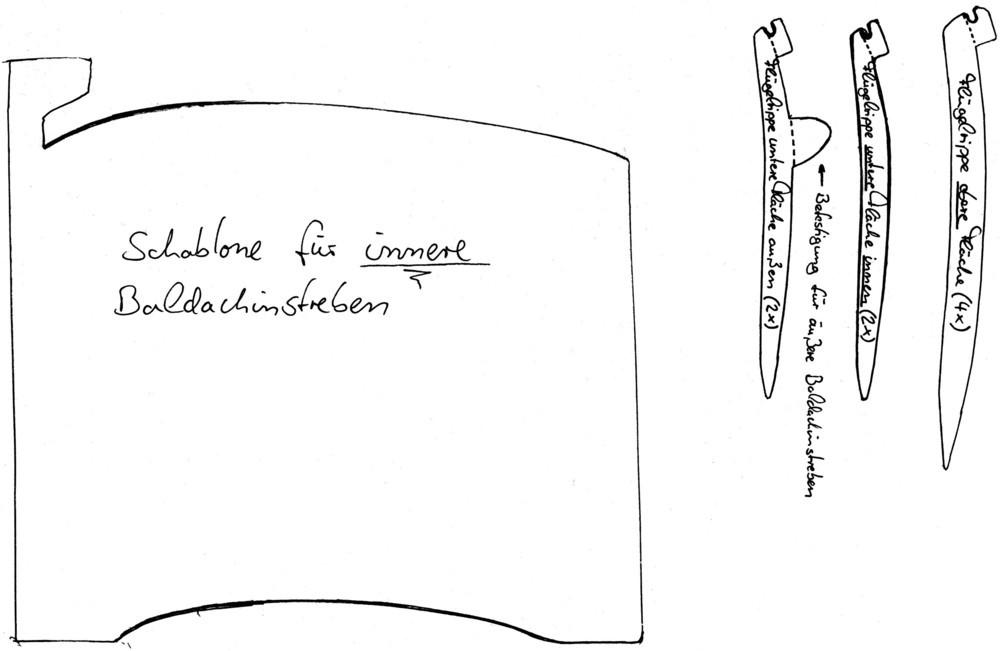 Schablone für innere
Baldachinstreben
Flügelrippe untere Fläche außen (2x)
Befestigung für äußere Baldachinstreben
Flügelrippe untere Fläche innen (2x)
Flügelrippe obere Fläche (4x)